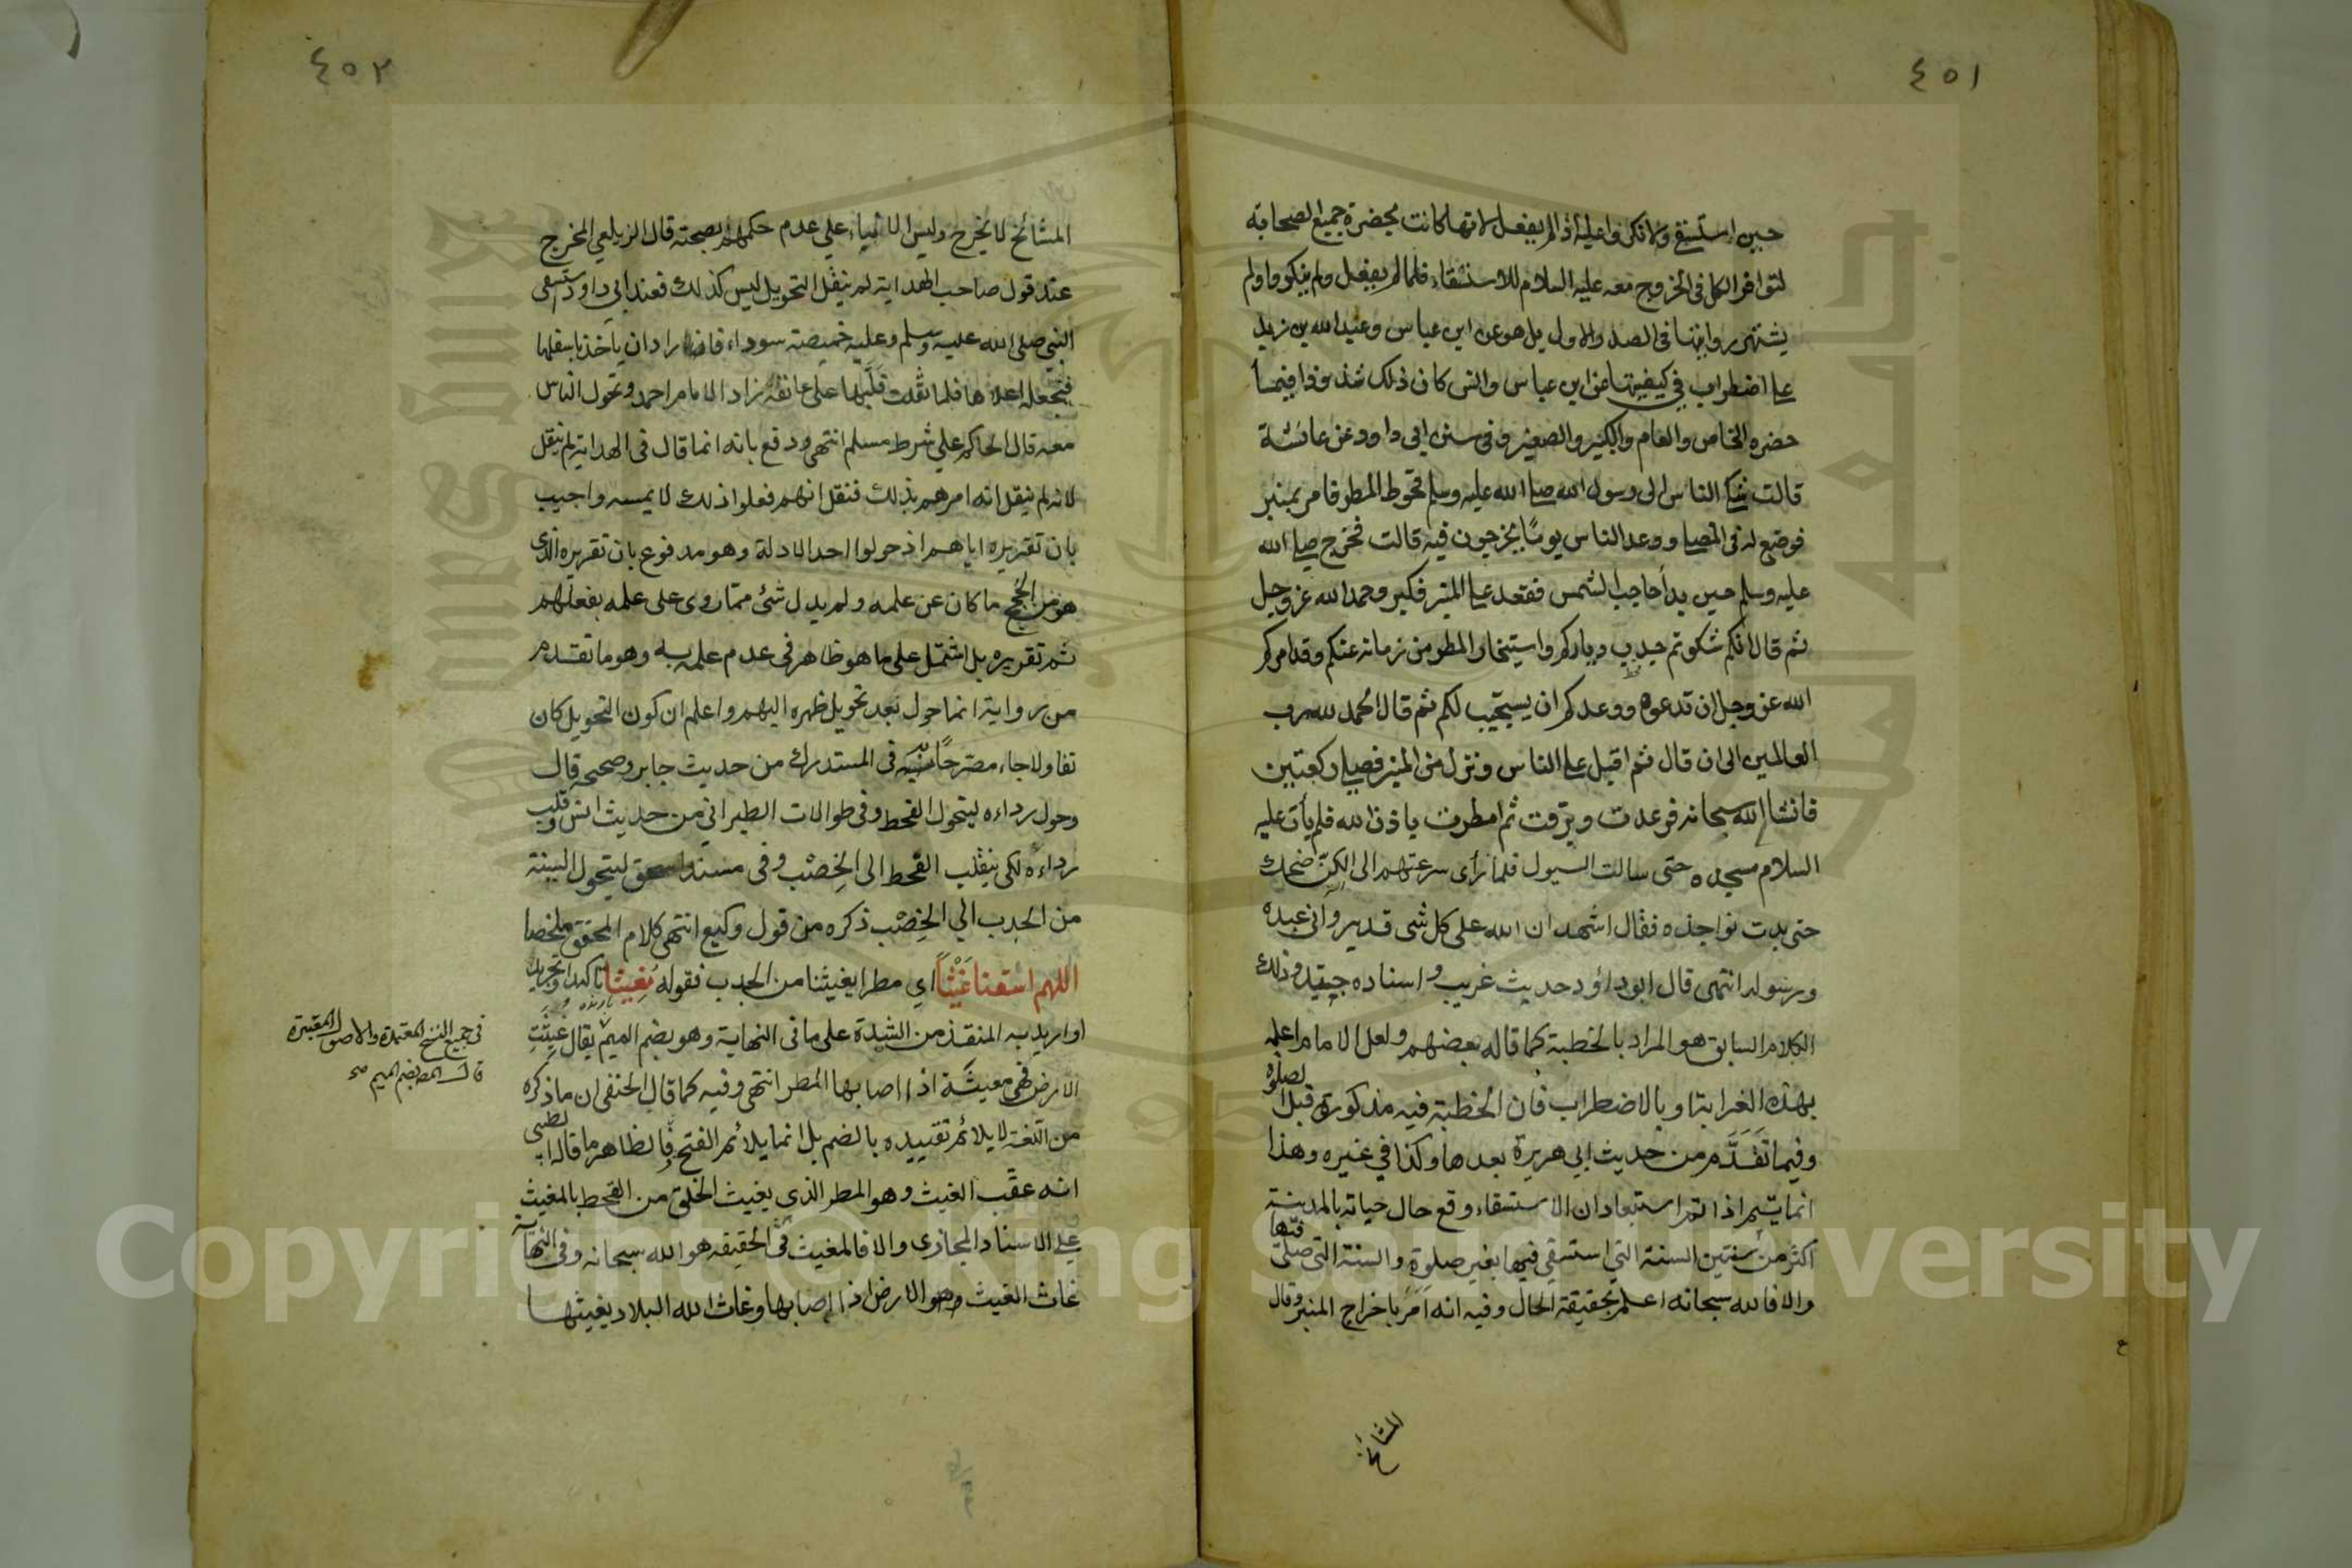 ٤٥١
حين استسقى ولانكروا عليه اذا لم يفعل لانها كانت بحضرة جميع الصحابة
لتوافر الكل في الخروج معه عليه السلام للاستسقاء فلما لم يفعل ولم ينكروا ولم
يشتهر روايتها في الصدر الاول بل هو عن ابن عباس وعبد الله بن زيد
على اضطراب في كيفيتها عن ابن عباس وانس كان ذلك شذوذا فيما
حضره الخاص والعام والكبير والصغير وفي سنن ابي داود عن عائشة
قالت شكا الناس الى رسول الله صلى الله عليه وسلم قحوط المطر فامر بمنبر
فوضع له في المصلى ووعد الناس يوما يخرجون فيه قالت فخرج صلى الله
عليه وسلم حين بدأ حاجب الشمس فقعد على المنبر فكبر وحمد الله عز وجل
ثم قال انكم شكوتم جدب دياركم واستيخار المطر من زمانه عنكم وقد امركم
الله عز وجل ان تدعوه ووعدكم ان يستجيب لكم ثم قال الحمد لله رب
العالمين الى ان قال ثم اقبل على الناس ونزل من المنبر فصلى ركعتين
فانشا الله سبحانه فرعدت وبرقت ثم امطرت باذن الله فلم يأت عليه
السلام مسجده حتى سالت السيول فلما رأى سرعتهم الى الكن ضحك
حتى بدت نواجذه فقال اشهد ان الله على كل شى قدير وانى عبده
ورسوله انتهى قال ابو داؤد حديث غريب واسناده جيد وذلك
الكلام السابق هو المراد بالخطبة كما قاله بعضهم ولعل الامام اعله
بهذه الغرابة او بالاضطراب فان الخطبة فيه مذكورة قبل الصلوة
وفيما تقدم من حديث ابي هريرة بعدها وكذا في غيره وهذا
انما يتم اذا تم استبعاد ان الاستسقاء وقع حال حياته بالمدينة
اكثر من سنتين السنة التي استسقى فيها بغير صلوة والسنة التى صلى فيها
والا فالله سبحانه اعلم بحقيقة الحال وفيه انه امر باخراج المنبر وقال
المشائخ
٤٥٢
المشائخ لا يخرج وليس الا بناء على عدم حكمهم بصحته قال الزيلعي المخرج
عند قول صاحب الهداية لم ينقل التحويل ليس كذلك فعند ابي داود استسقى
النبي صلى الله عليه وسلم وعليه خميصة سوداء فاراد ان يأخذ باسفلها
فيجعله اعلاها فلما ثقلت قلبها على عاتقه زاد الامام احمد وتحول الناس
معه قال الحاكم على شرط مسلم انتهى ودفع بانه انما قال في الهداية لم ينقل
لانه لم ينقل انه امرهم بذلك فنقل انهم فعلوا ذلك لا يمسه واجيب
بان تقريره اياهم اذ حولوا احد الادلة وهو مدفوع بان تقريره الذى
هو من الحجج ما كان عن علمه ولم يدل شئ مما روى على علمه بفعلهم
ثم تقريره بل اشتمل على ما هو ظاهر في عدم علمه به وهو ما تقدم
من رواية انما حول بعد تحويل ظهره اليهم واعلم ان كون التحويل كان
تفاولا جاء مصرحا به في المستدرك من حديث جابر وصححه قال
وحول رداءه ليتحول القحط وفي طوالات الطبراني من حديث انس وقلب
رداءه لكى ينقلب القحط الى الخصب وفى مسند اسحق لتتحول السنة
من الجدب الي الخصب ذكره من قول وكيع انتهى كلام المحقق ملخصا
اللهم اسقنا غيثا اي مطرا يغيثنا من الجدب فقوله مغيثا تاكيد او تجريد
او اريد به المنقذ من الشدة على ما فى النهاية وهو بضم الميم يقال غيثت
الارض فهى مغيثة اذا اصابها المطر انتهى وفيه كما قال الحنفي ان ما ذكره
من اللغة لا يلائم تقييده بالضم بل انما يلائم الفتح فالظاهر ما قاله الطيبي
انه عقب الغيث وهو المطر الذى يغيث الخلق من القحط بالمغيث
على الاسناد المجازى والا فالمغيث في الحقيقه هو الله سبحانه وفى النهاية
غاث الغيث الارض اذا اصابها وغاث الله البلاد يغيثها
فى جميع النسخ المعتمدة والاصول المعتبرة
بضم الميم صح